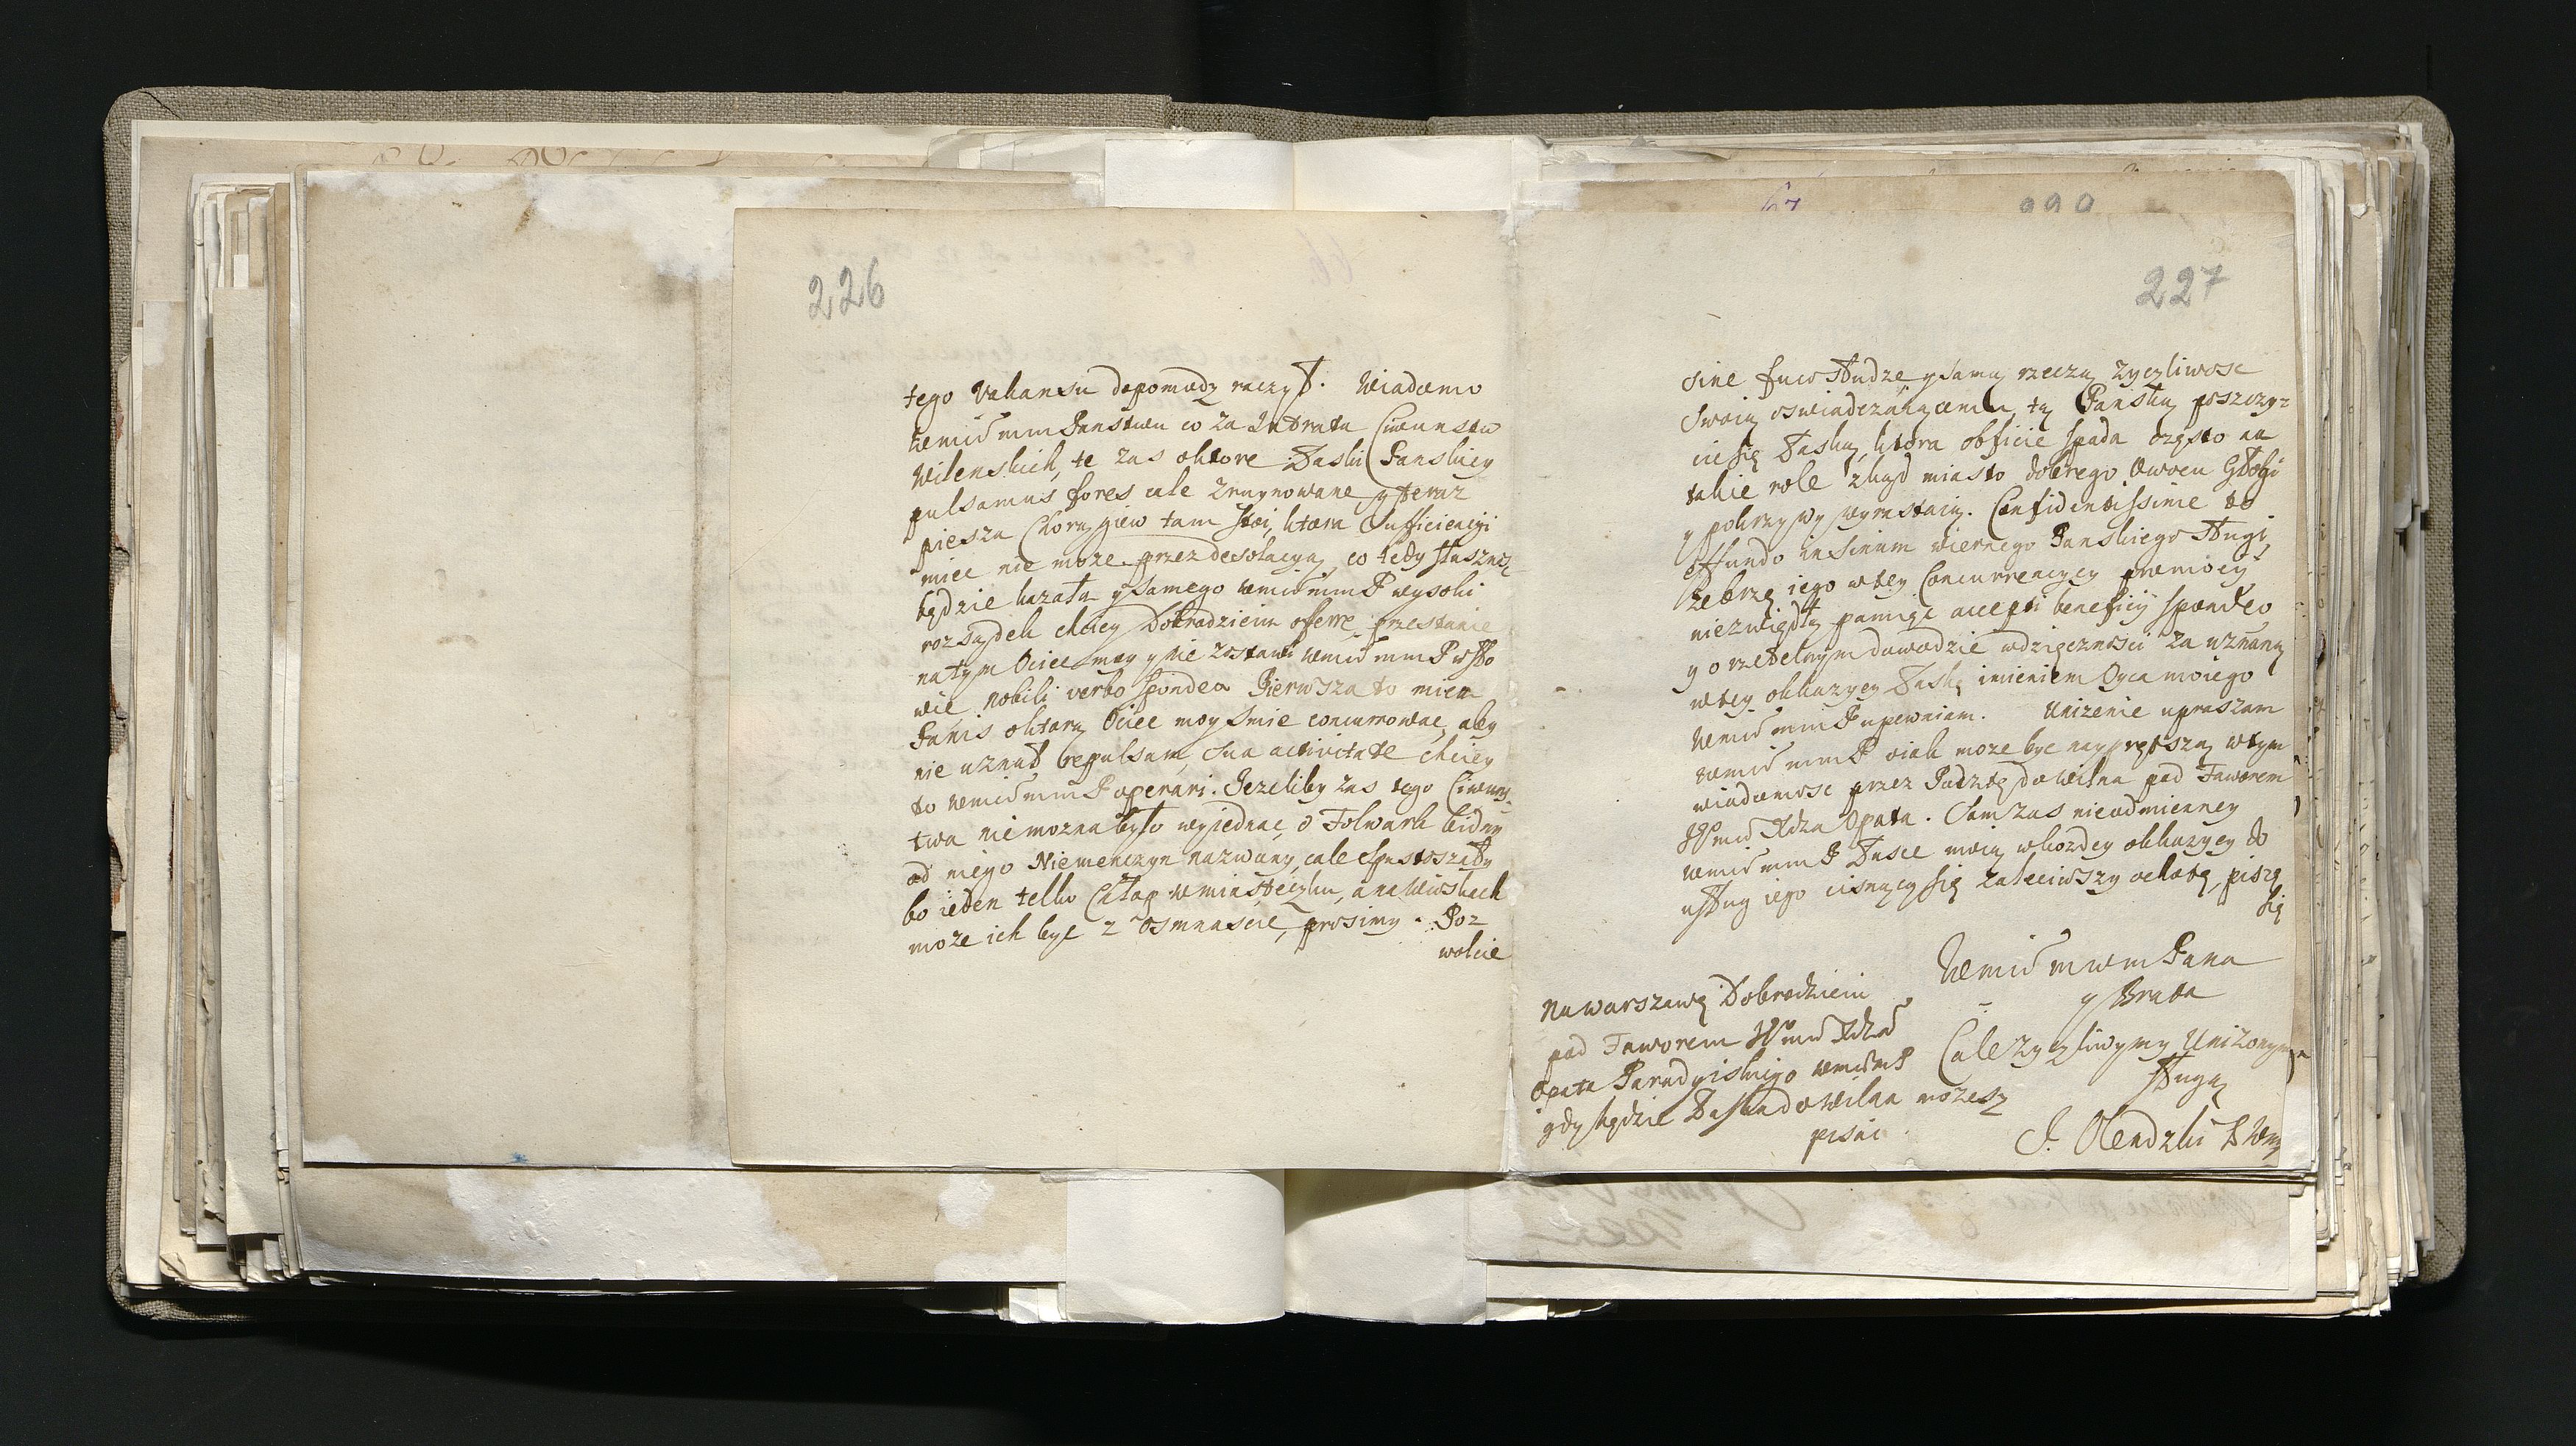 226
tego Vakansu depomodz raczył. Wiadomo
wmiemm Państwu co za Intrata Ciwunstw
Wilenskich, te zas oktore Łaski Panskiey
pulsamus fores cale zruynowane, y teraz
piesza Chorągiew tam stoi, ktora Sufficiencyi
miec nie może przez desolacyą, co tedy słuszność
będzie kazała y samego wmiemm P wysoki
rozsądek chciey Dobrodzieiu offerre, przestanie
natym Ociec moy y nie zostawi wmiemm P wsło
wie nobili verbo spondeo Pierwsza to miea
Panis oktorą Ociec moy smie concurrowac, aby
nie uznał repulsam, sua activitate chciey
to wmiemm P operari. Jezeliby zas tego Ciwuns
twa niemozna było wyjednac, o Folwark bidny
od niego Niemenczyn nazwany, cale spustoszały
bo ieden telko Chłop w miasteczku, a na Wioskach
może ich byc z osmnascie, prosimy. Poz
wolcie
67
227
sine fuco Słudze y samą rzeczą zyczliwosc
Swoią oswiadczaiącemu, tą Panską poszczy=
cic się Łaską, ktora obficie spada często na
takie role zkąd miasto dobrego Owocu Głogi
y pokrzywy wyrastaią. Confidentissime to
effundo in Sinum wiernego Panskiego Sługi,
Zebrzę iego wtey Concurrencyey promocyi
niezwiędłą pamięc accepti beneficij spondeo
y o rzetelnym dowodzie wdzięcznosci za uznaną
wtey okkazyey Łaskę imieniem Oyca moiego
wmiemm P upewniam. Unizenie upraszam
wmiemm P oiak moze byc nayprętszą wtym
wiadomosc przez Pocztę do Wilna pod Faworem
JWmci Xdza Opata. Sam zas nieodmienney
wmiemm P Łasce moią wkozdey okkazyey do
usług iego cisnący się zaleciwszy ochotę, piszę
się
Wmiemwm Pana
y Brata
Cale zyczliwymy Unizonym
Sługą
J. Olendzki
Na Warszawę Dobrodzieiu
pod Faworem JWmci Xdza
Opata Paradyiskiego wmiemP
gdy będzie Łaska do Wilna możesz
pisac